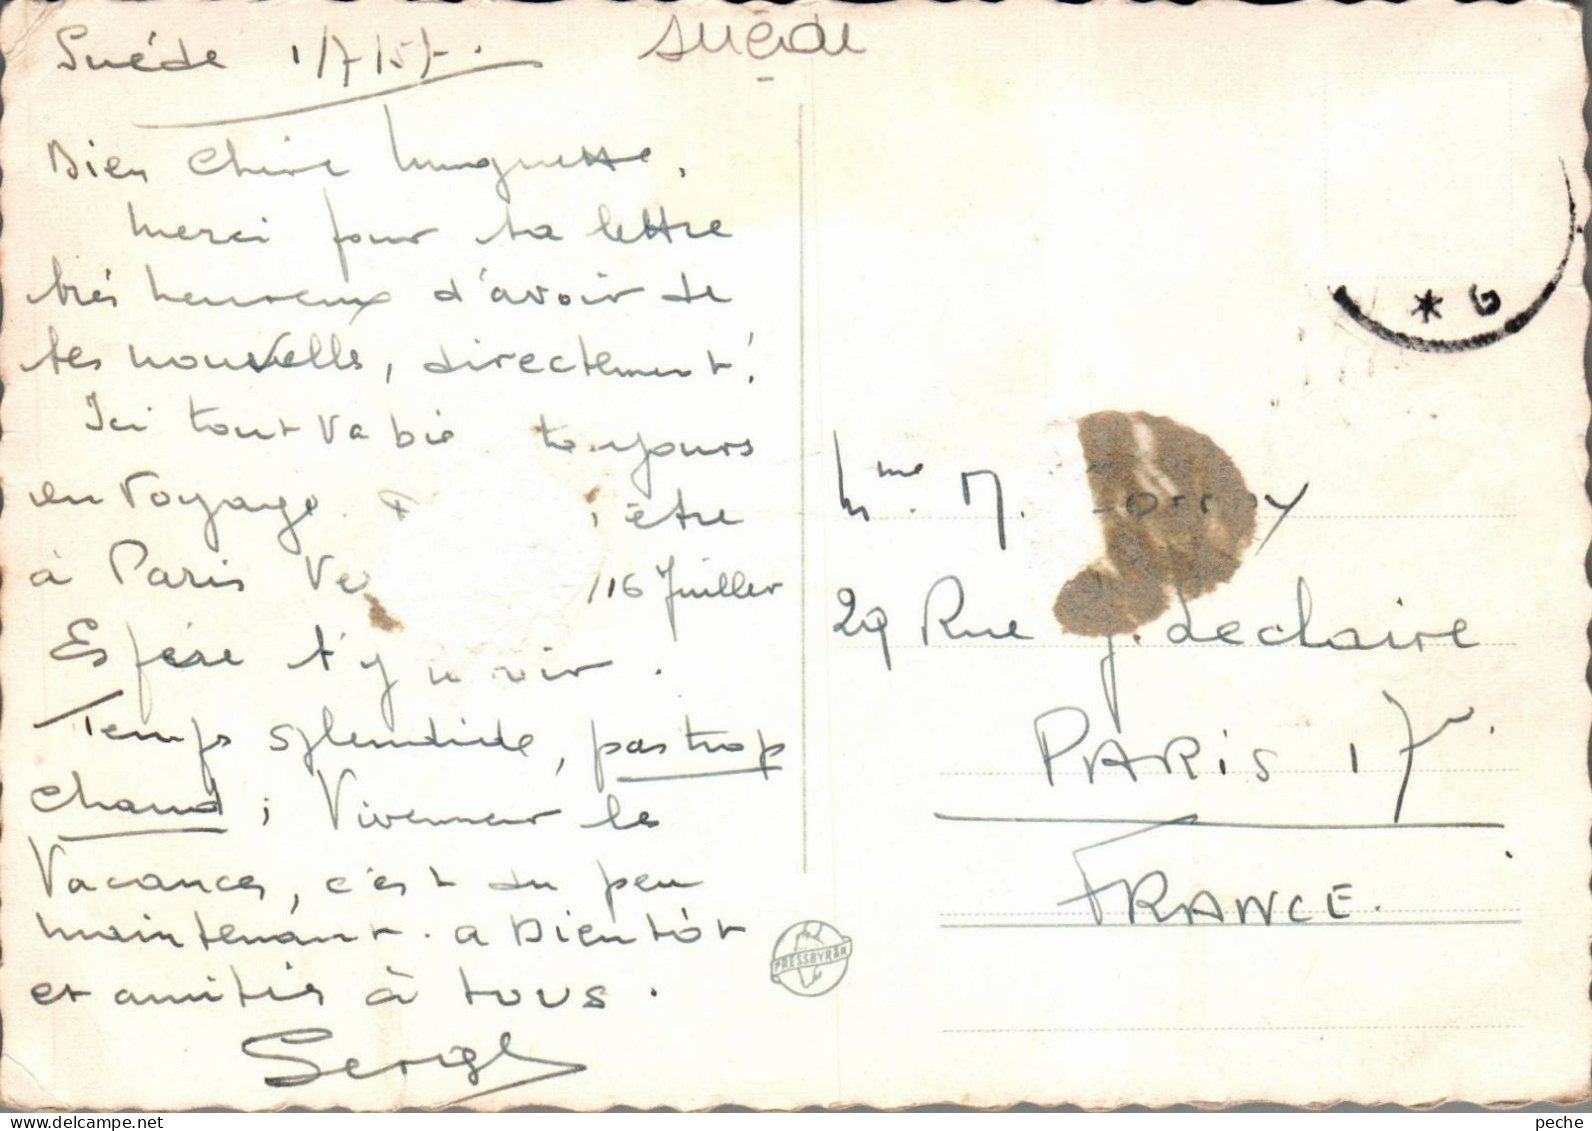 Suéde 1/7/57.
suède
Bien Chère Huguette,
Merci pour ta lettre
très heureux d'avoir de
tes nouvelles, directement!
Ici tout va bie toujours
en voyage. être
à Paris Ve /16 Juillet
Espère t'y voir.
Temps splendide, pas trop
chaud; Vivement les
Vacances, c'est du peu
maintenant. a Bientôt
et amitiés à tous.
Serge
PRESSBYRÅN
* 6
Mme. M.
29 Rue J. Leclaire
PARIS 17e.
FRANCE.
peche